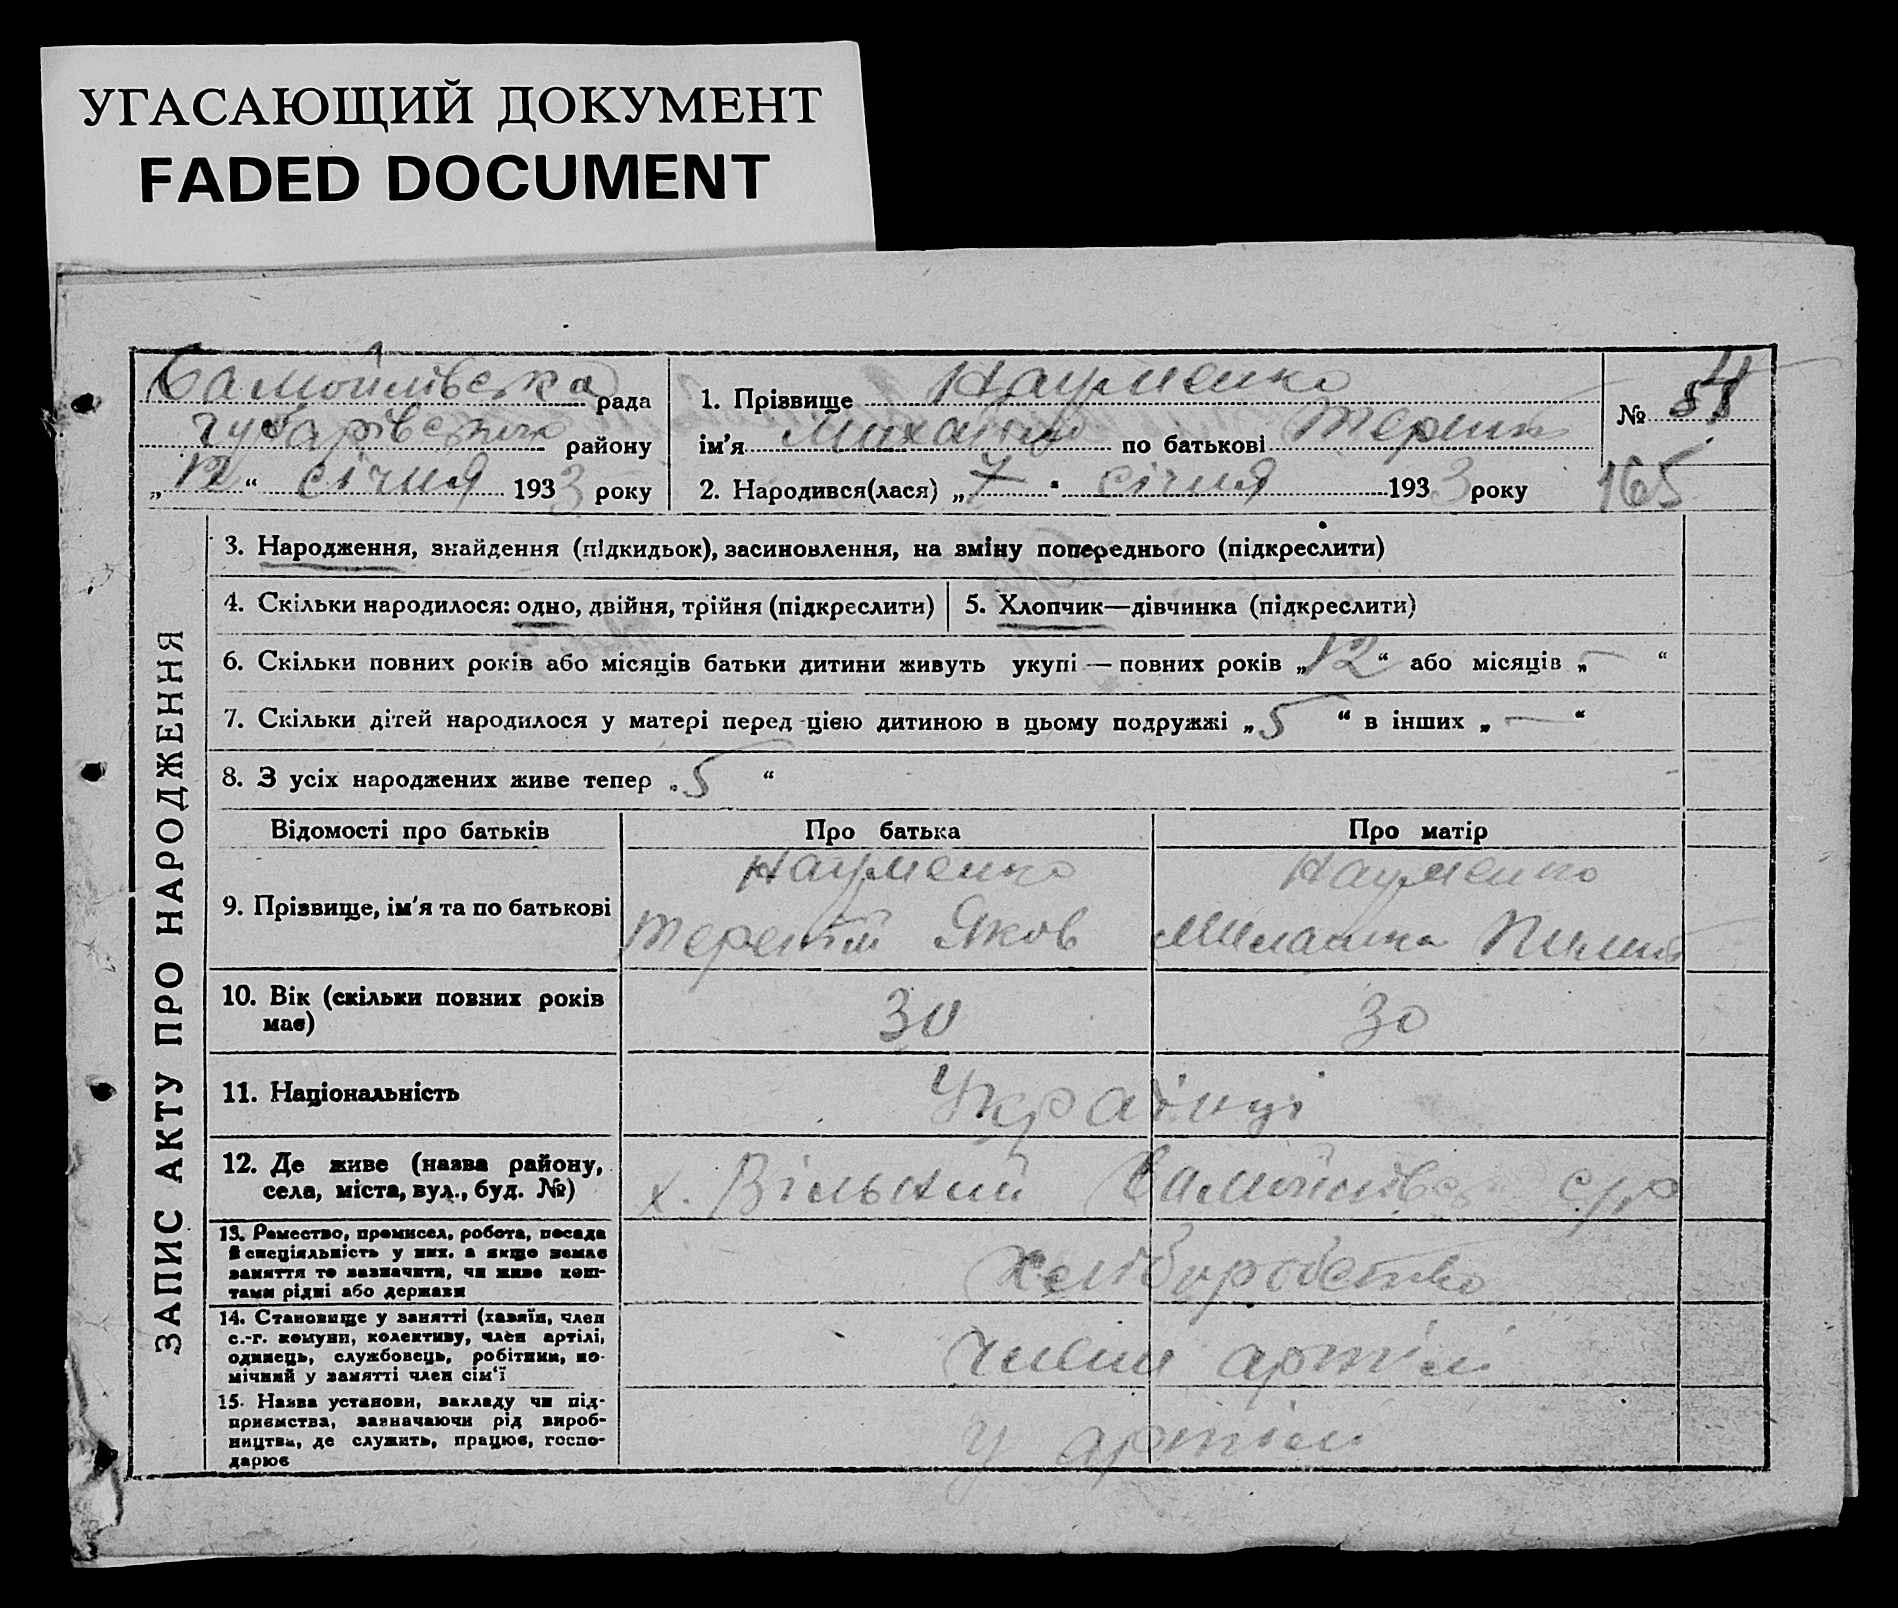 УГАСАЮЩИЙ ДОКУМЕНТ
FADED DOCUMENT
Самойлівська рада
Губарівського району
„12“ січня 1933 року
1. Прізвище Науменко
ім’я Михайло по батькові Терент
2. Народився(лася) „7“ січня 1933 року
№ 4
165
ЗАПИС АКТУ ПРО НАРОДЖЕННЯ
3. Народження, знайдення (підкидьок), засиновлення, на зміну попереднього (підкреслити)
4. Скільки народилося: одно, двійня, трійня (підкреслити)
5. Хлопчик—дівчинка (підкреслити)
6. Скільки повних років або місяців батьки дитини живуть укупі — повних років „12“ або місяців „—“
7. Скільки дітей народилося у матері перед цією дитиною в цьому подружжі „5“ в інших „—“
8. З усіх народжених живе тепер „5“
Відомості про батьків
Про батька
Про матір
9. Прізвище, ім’я та по батькові
Науменко
Терентій Яков
Науменко
Милашка Пилип
10. Вік (скільки повних років
має)
30
30
11. Національність
Українці
12. Де живе (назва району,
села, міста, вул., буд. №)
х. Вільний Самойлівс с/р
13. Ремество, промисел, робота, посада
й спеціяльність у них, а якщо немає
заняття то зазначити, чи живе кош-
тами рідні або держави
Хліборобство
14. Становище у занятті (хазяїн, член
с.-г. комуни, колективу, член артілі,
одинець, службовець, робітник, по-
мічний у занятті член сім‘ї
Члени артілі
15. Назва установи, закладу чи під-
приємства, зазначаючи рід вироб-
ництва, де служить, працює, госпо-
дарює
у артілі